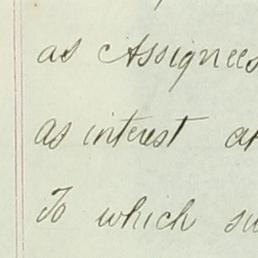 as Assignees
as interest
To which